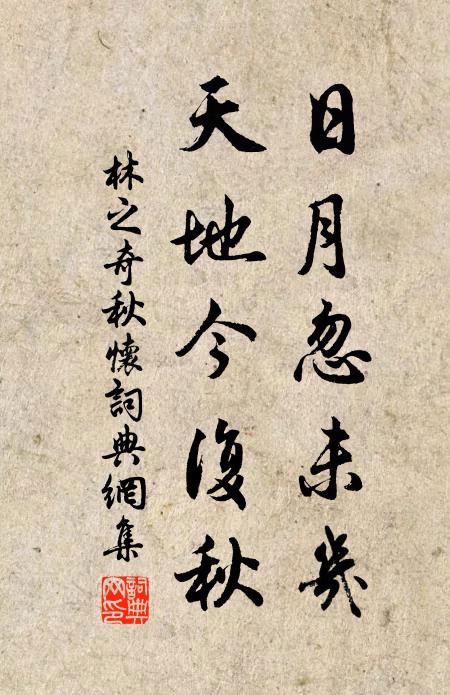 日月忽未幾
天地今復秋
林之奇秋懷詞典網集
詞典網印